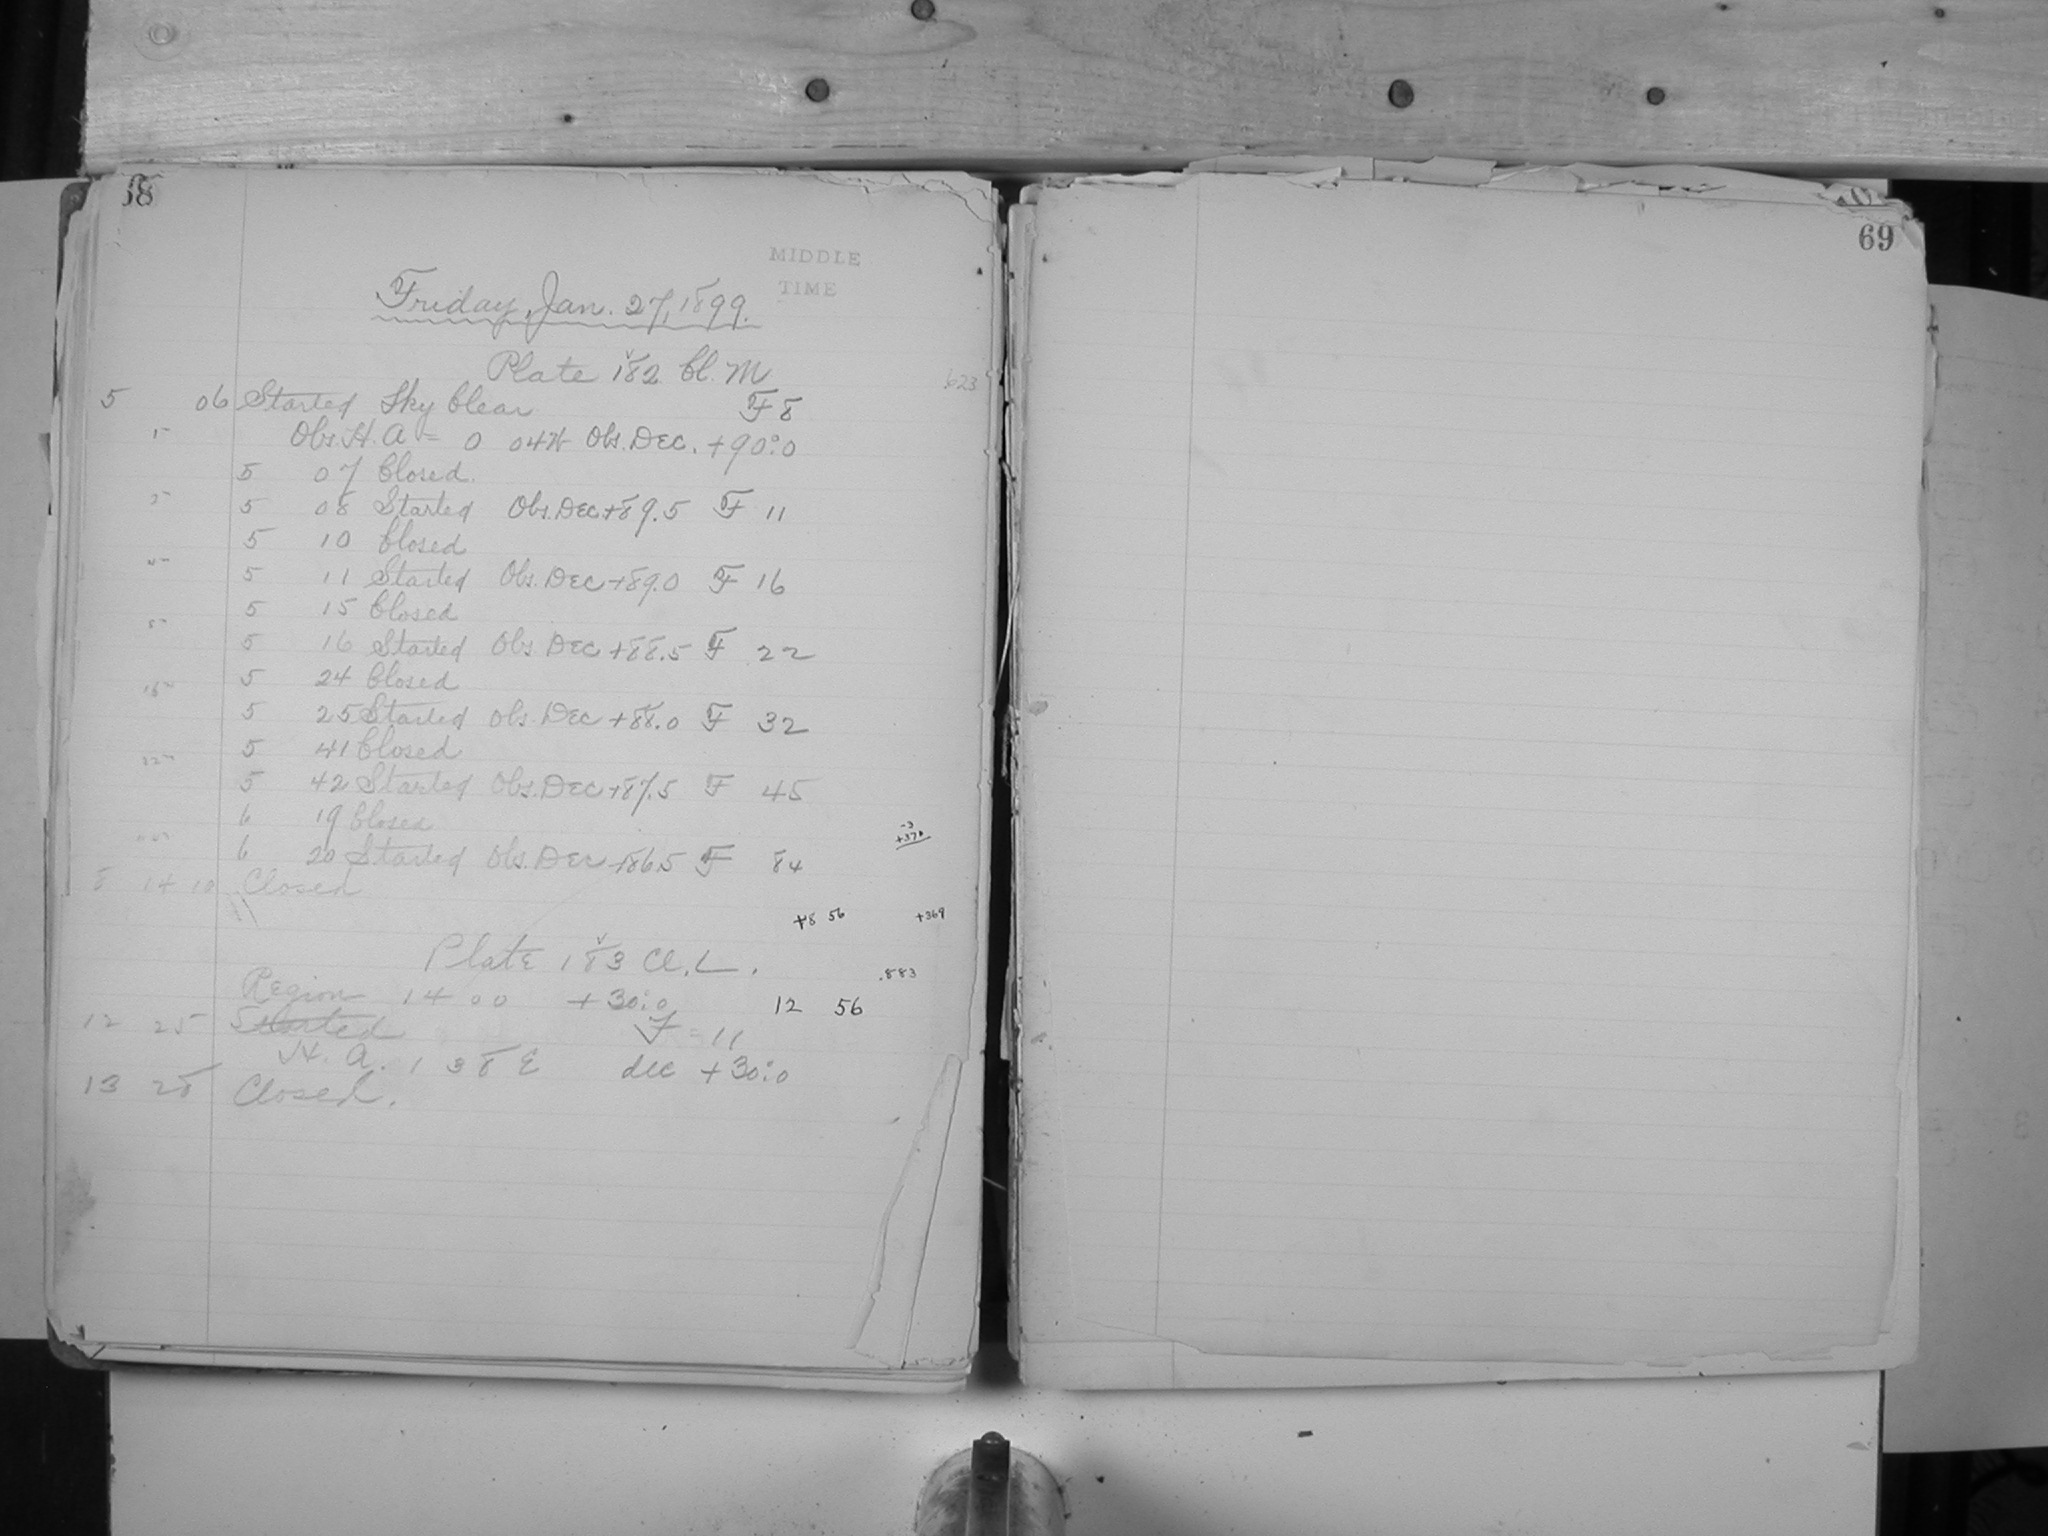 58
MIDDLE
TIME
Friday, Jan. 27, 1899.
Plate 182 Cl. M
623
5 06 Started Sky Clear F 8
Obs. H. A = 0 04 W Obs. Dec. +90°.0
5 07 Closed.
5 08 Started Obs. Dec +89.5 F 11
5 10 Closed
5 11 Started Obs. Dec +89.0 F 16
5 15 Closed
5 16 Started Obs Dec +88.5 F 22
5 24 Closed
5 25 Started Obs. Dec +88.0 F 32
5 41 Closed
5 42 Started Obs. Dec +87.5 F 45
6 19 Closed
-3
+370
6 20 Started Obs. Dec +86.5 F 84
8 14 10 Closed
+8 56 +369
Plate 183 Cl. L.
.883
Region 14 00 +30°.0 12 56
12 25 Started F = 11
H. A. 1 38 E dec +30°.0
13 25 Closed.
69